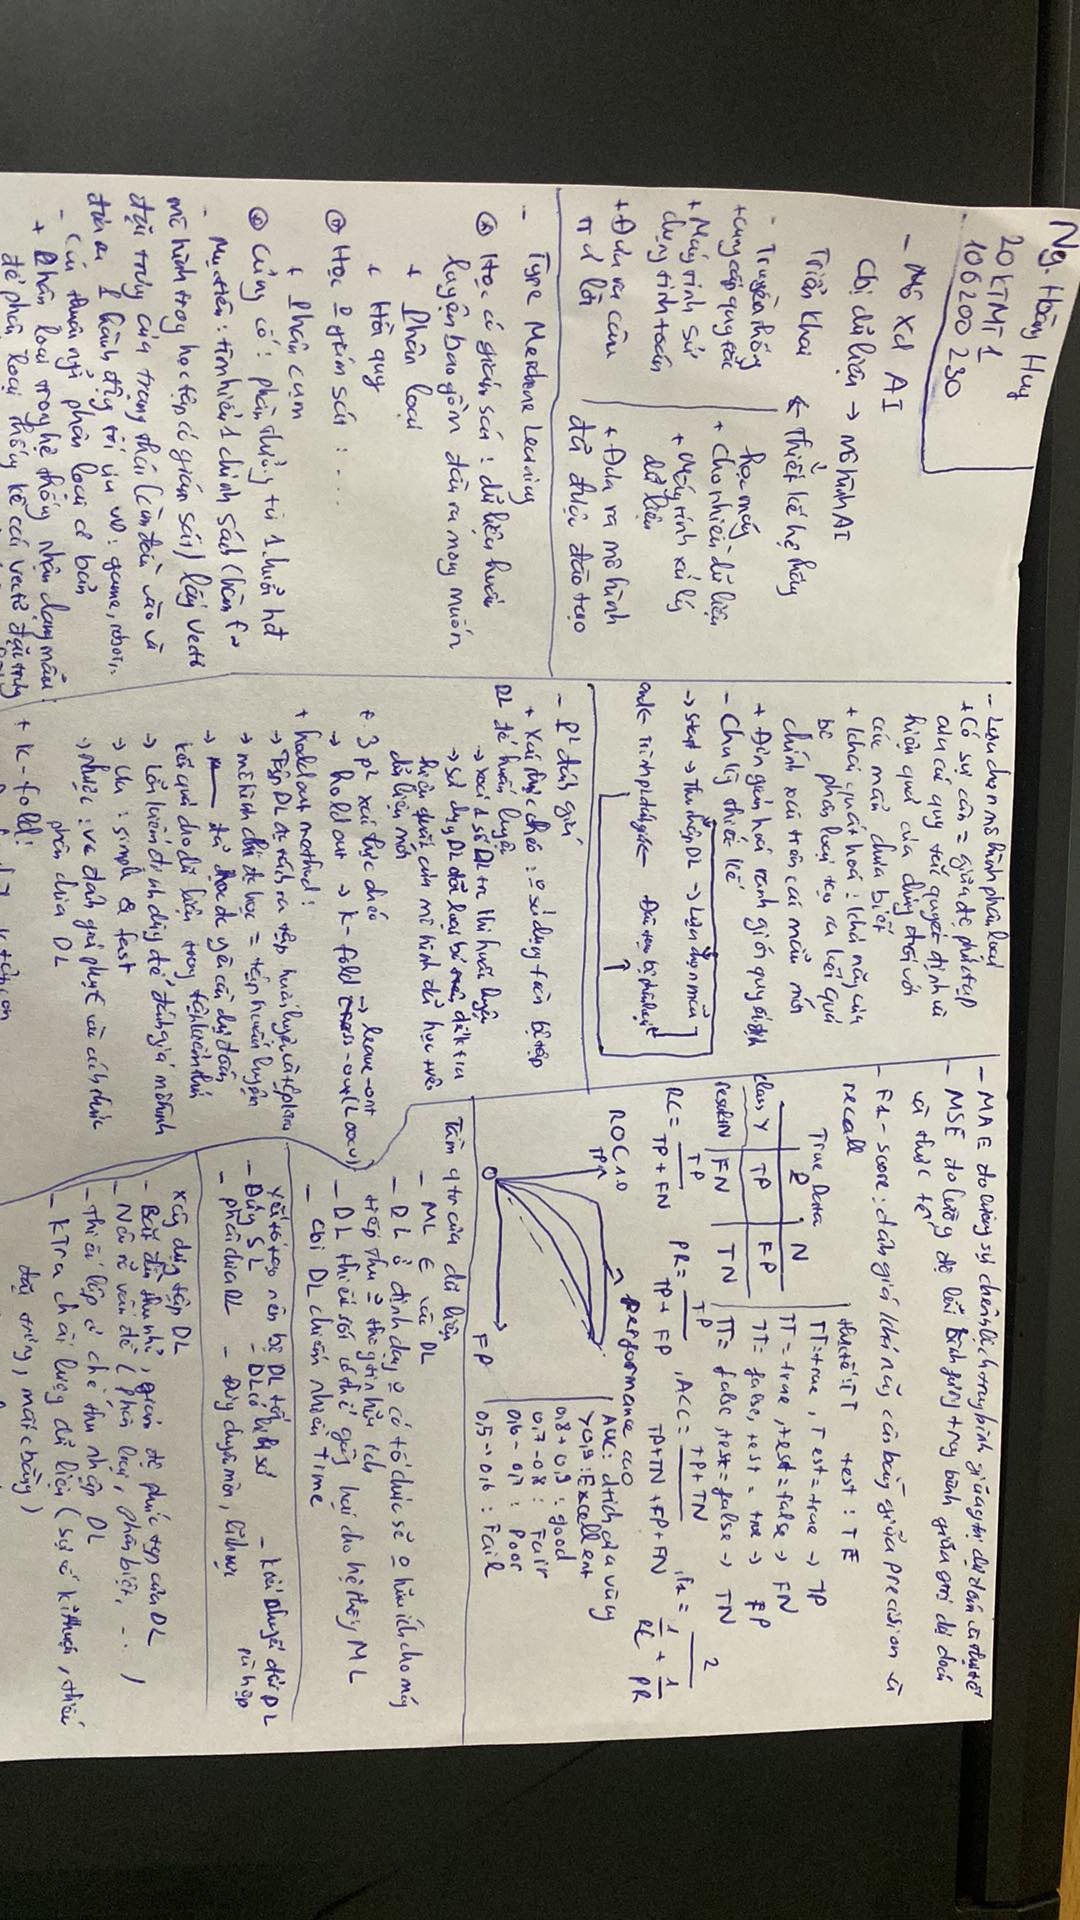 Ng. Hoàng Huy
20KTMT1
106200230
- Mô xd AI
Cbị dữ liệu → mô hình AI
↓
Triển khai ← Thiết kế hệ thống
- Truyền thống
+ cung cấp quy tắc
+ Máy tính sử
dụng tính toán
+ Đưa ra câu
trả lời
học máy
+ Cho nhiều dữ liệu
+ Máy tính xử lý
dữ liệu
+ Đưa ra mô hình
đã được đào tạo
- Type Learning
Học có giám sát : dữ liệu huấn
luyện bao gồm đầu ra mong muốn
+ Phân loại
+ Hồi quy
Học 0 giám sát : ...
+ Phân cụm
Củng cố : phần thưởng từ 1 chuỗi hđ
Mục tiêu : tìm hiểu 1 chính sách (hàm
mô hình trong học tập có giám sát) lấy vectơ
đặc trưng của trạng thái (làm đầu vào và
đưa ra 1 hành động tối ưu VD: game, robot,..
- Các thuật ngữ phân loại cơ bản
+ Phân loại trong hệ thống nhận dạng mẫu :
để phân loại thống kê các vectơ đặc trưng
- Lựa chọn mô hình phân loại
+ Có sự cân = giữa độ phức tạp
của các quy tắc quyết định và
hiệu quả của chúng đối với
các mẫu chưa biết
+ khái quát hoá : khả năng của
bộ phân loại tạo ra kết quả
chính xác trên các mẫu mới
+ Đơn giản hoá ranh giới quyết định
- Chu kỳ thiết kế
→ start → Thu thập DL → Lựa chọn mẫu
end ← Trình PL đánh giá ← Đào tạo bộ phân loại
- P² đánh giá
+ Xác thực chéo : 0 sử dụng toàn bộ tập
DL để huấn luyện
→ xoá 1 số DL trc khi huấn luyện
→ sử dụng DL đã loại bỏ để ktra
hiệu suất của mô hình đã học trên
dữ liệu mới
+ 3 p² xác thực chéo
→ hold out → k-fold → leave-one-out (LOOCV)
+ holdout method :
→ Tập DL đc tách ra tập huấn luyện và tập ktra
→ mô hình chỉ đc học = tập huấn luyện
→ đã học đc yêu cầu dự đoán
kết quả cho dữ liệu trong tập kiểm thử
→ Lỗi kiểm định dùng để đánh giá mô hình
→ Ưu : simple & fast
→ nhược : vc đánh giá phụ thuộc cách thức
phân chia DL
+ k-fold :
- MAE đo lường sự chênh lệch trung bình giữa giá trị dự đoán và thực tế
- MSE đo lường độ lỗi bình phương trung bình giữa giá trị dự đoán
và thực tế
- F1-score : đánh giá khả năng cân bằng giữa precision và
recall
True Data
P N
class Y TP FP
result N FN TN
thực tế : TT test : TE
TT = true, Test = true → TP
TT = true, test = false → FN
TT = false, test = true → FP
TT = false, test = false → TN
RC = TP / TP + FN PR = TP / TP + FP , ACC = TP + TN / TP+TN+FP+FN , F1 = 2 / 1/RC + 1/PR
performance cao
ROC 1.0
TP
0
FP
AUC: dtích của vùng
>0,9 : Excellent
0,8 → 0,9 : good
0,7 - 0,8 : Fair
0,6 - 0,7 : Poor
0,5 → 0,6 : Fail
Tầm qtr của dữ liệu
- ML ∈ vào DL
- DL ở định dạng 0 có tổ chức sẽ 0 hữu ích cho máy
tiếp thu thông tin hữu ích
- DL thiếu sót có thể gây hại cho hệ thống ML
- cbi DL chiếm nhiều Time
Yếu tố tạo nên bộ DL tốt
- Đủ SL - DL có lịch sử
- phân chia DL - Đúng chuyên môn, lĩnh vực
- Kiểu chuyển đổi DL
phù hợp
Xây dựng tập DL
- Bắt đầu thu nhỏ, giảm độ phức tạp của DL
- Nêu rõ vấn đề (phân loại, phân biệt, ...)
- Thiết lập cơ chế thu nhập DL
- Ktra chất lượng dữ liệu (sự cố kĩ thuật, thiếu
đặc trưng, mất cân bằng)